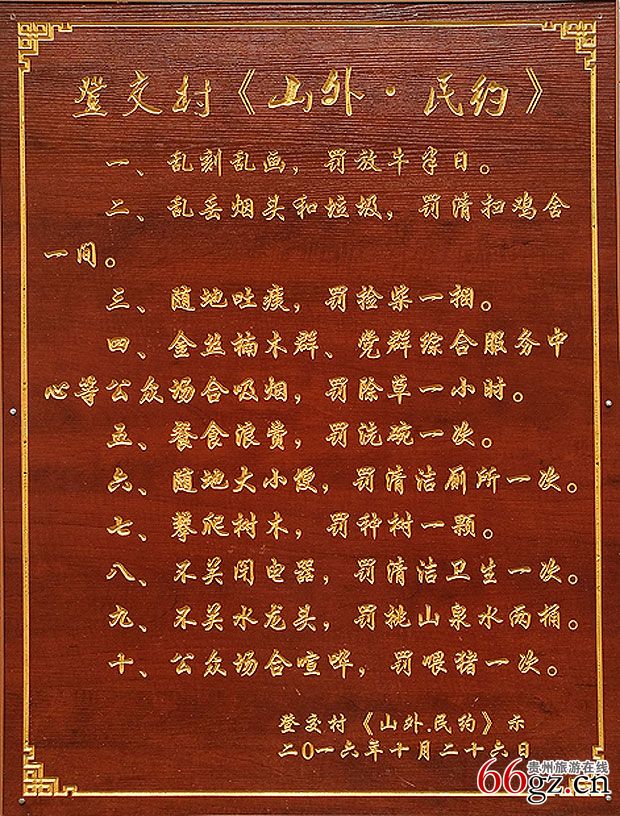 登交村《山外·民约》
一、乱刻乱画，罚放牛半日。
二、乱丢烟头和垃圾，罚清扫鸡舍
一间。
三、随地吐痰，罚捡柴一捆。
四、金丝楠木群、党群综合服务中
心等公众场合吸烟，罚除草一小时。
五、餐食浪费，罚洗碗一次。
六、随地大小便，罚清洁厕所一次。
七、攀爬树木，罚种树一颗。
八、不关闭电器，罚清洁卫生一次。
九、不关水龙头，罚挑山泉水两桶。
十、公众场合喧哗，罚喂猪一次。
登交村《山外.民约》示
二0一六年十月二十六日
贵州旅游在线
66gz.cn